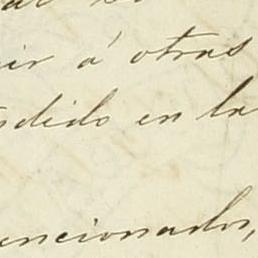 ir á otras
dido en la
encionados,